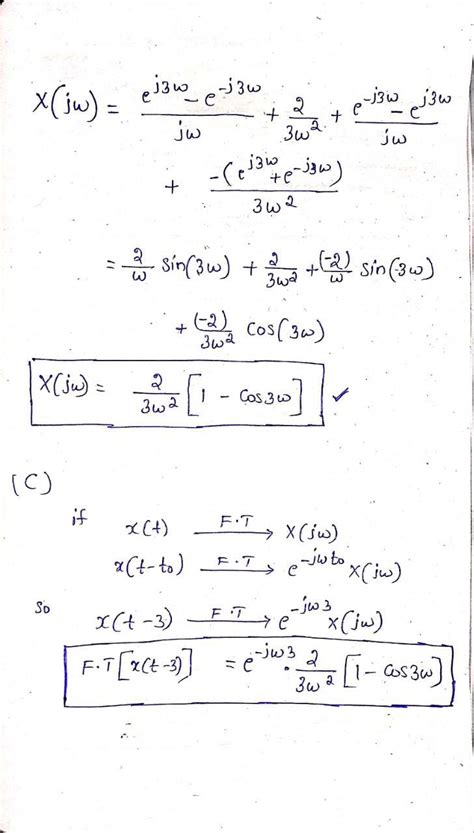 X(jω) = (e^{j3ω} - e^{-j3ω})/(jω) + 2/(3ω²) + (e^{-j3ω} - e^{j3ω})/(jω)
+ (-(e^{j3ω} + e^{-j3ω}))/(3ω²)
= 2/ω sin(3ω) + 2/(3ω²) + (-2)/ω sin(3ω)
+ (-2)/(3ω²) cos(3ω)
X(jω) = 2/(3ω²) [1 - cos3ω] ✓
(C)
if x(t) —F.T→ X(jω)
x(t-t₀) —F.T→ e^{-jωt₀} X(jω)
so x(t-3) —F.T→ e^{-jω3} X(jω)
F.T[x(t-3)] = e^{-jω3} · 2/(3ω²) [1 - cos3ω]